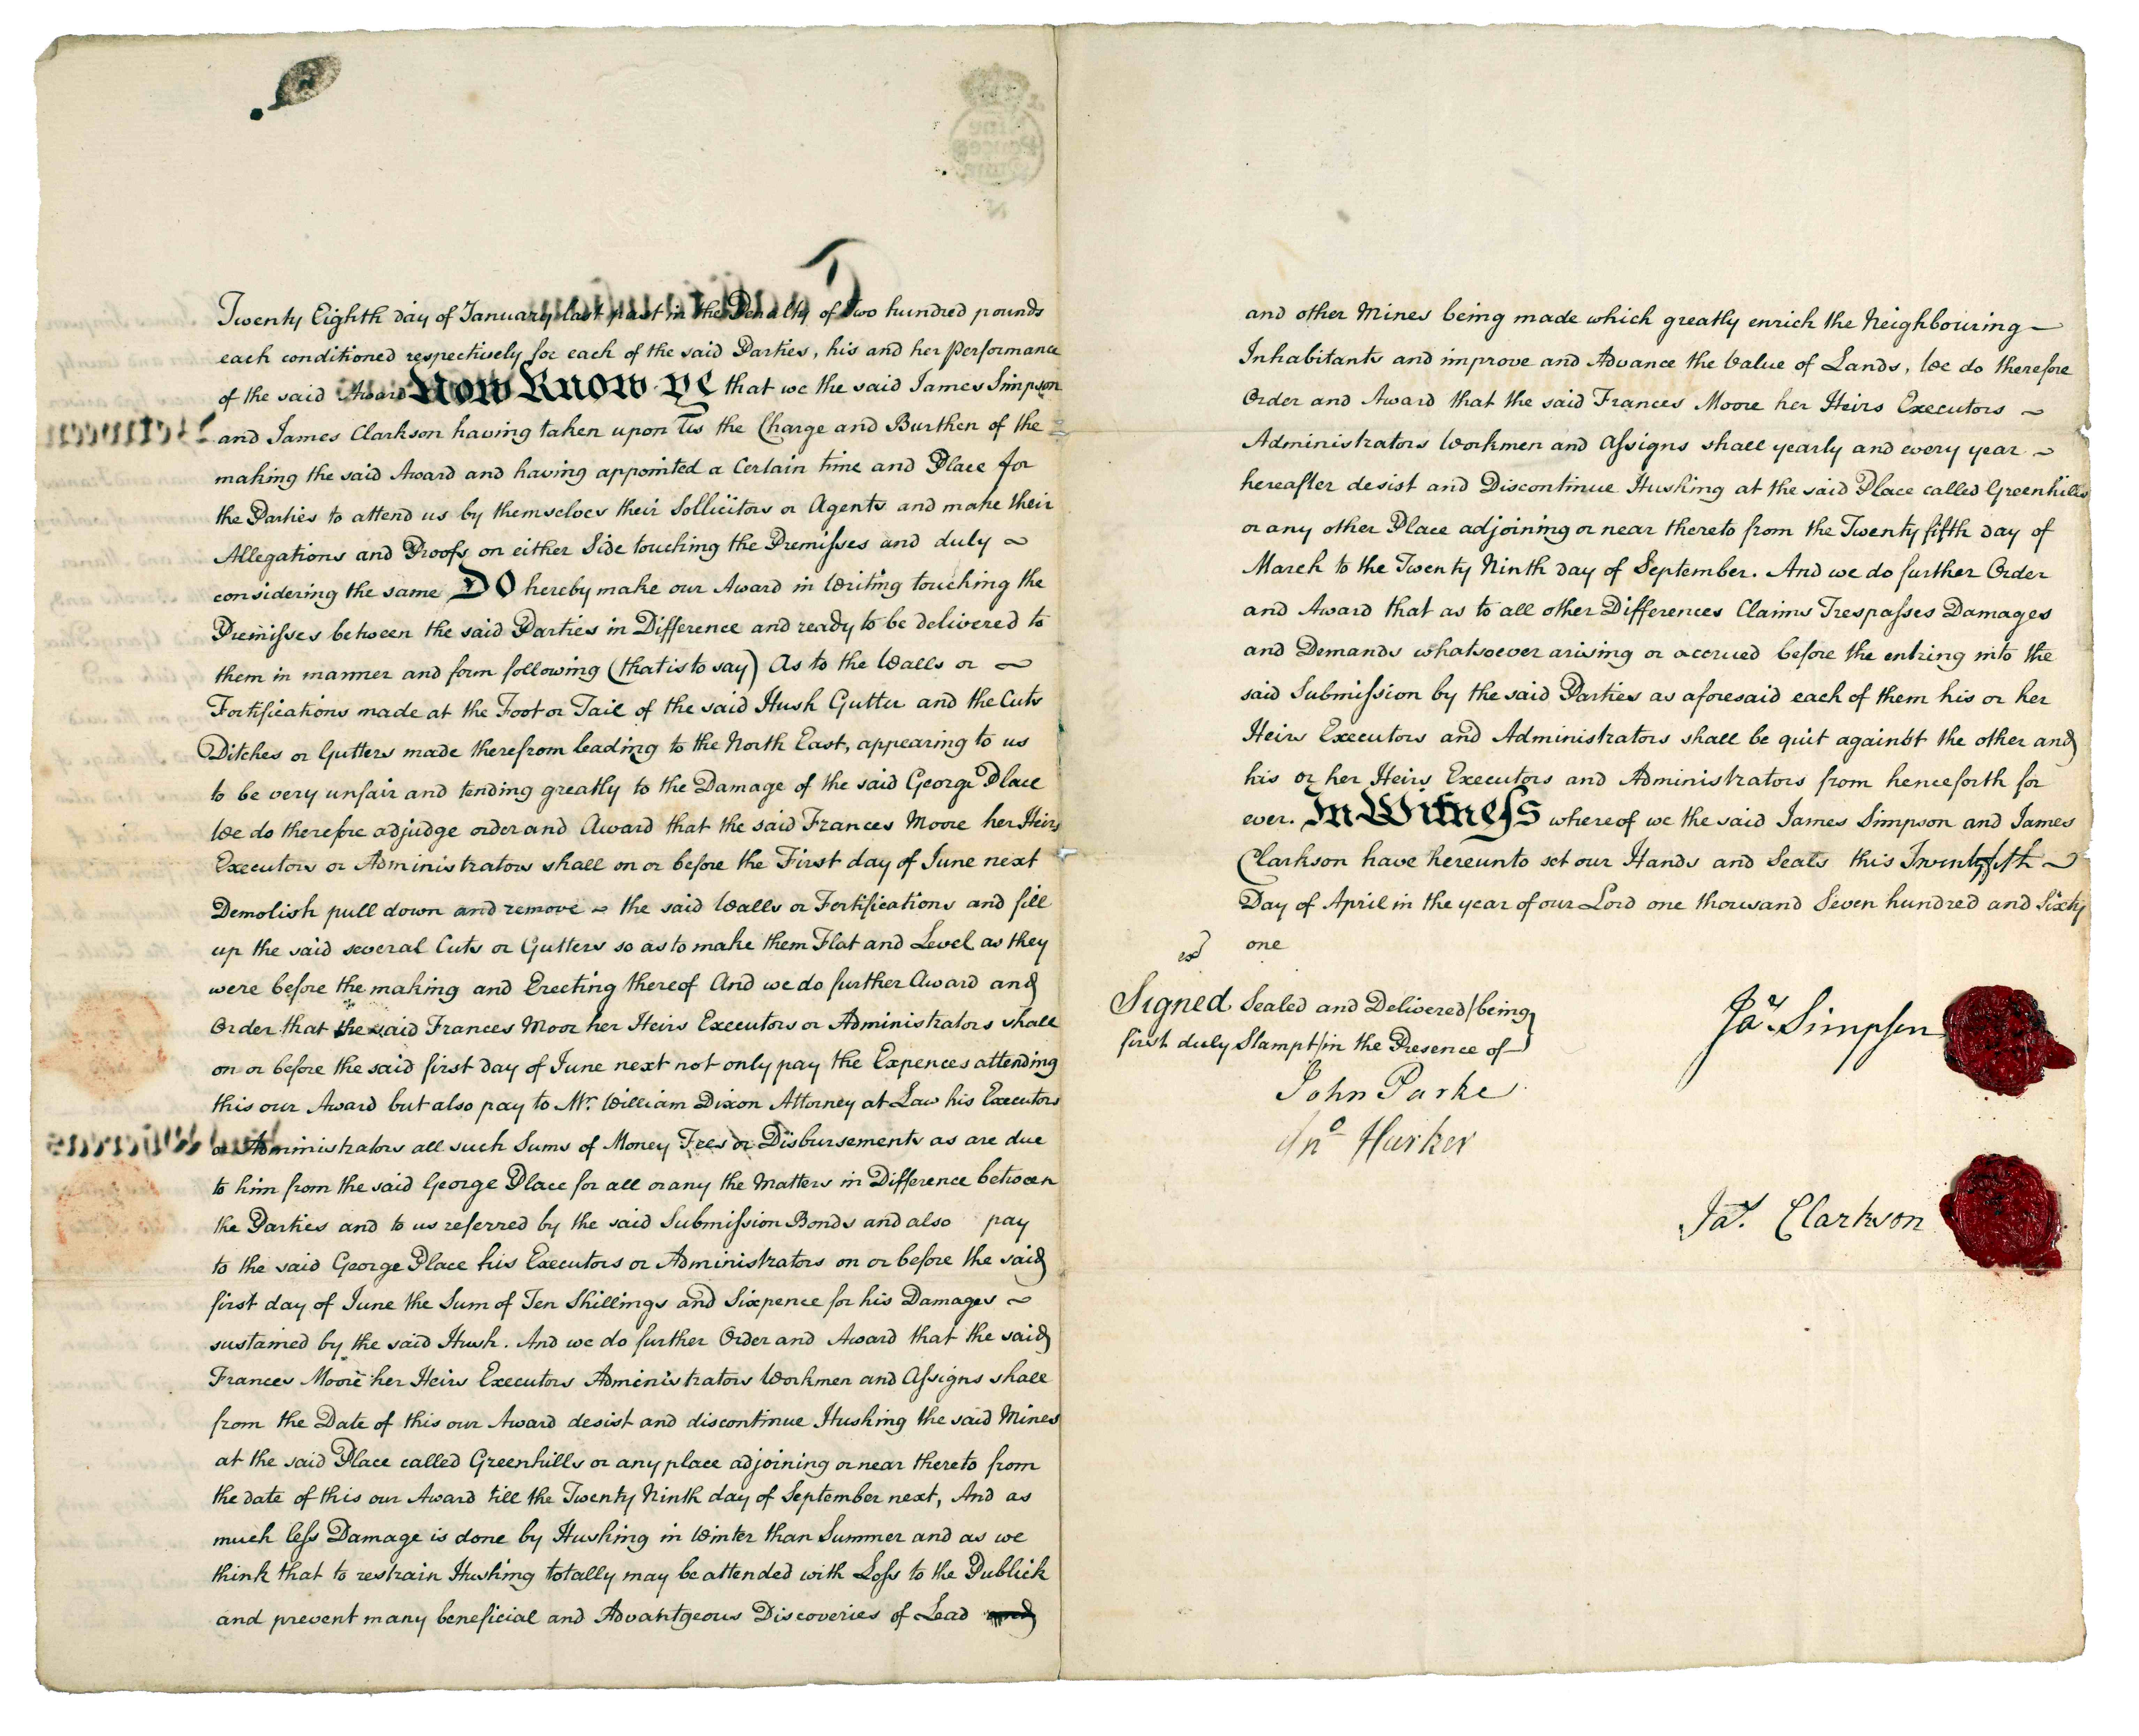 Twenty Eighth day of January last past in the Penalty of Two hundred pounds
each conditioned respectively for each of the said Parties, his and her Performance
of the said Award Now Know ye that we the said James Simpson
and James Clarkson having taken upon Us the Charge and Burthen of the
making the said Award and having appointed a Certain time and Place for
the Parties to attend us by themselves their Sollicitors or Agents and make their
Allegations and Proofs on either Side touching the Premisses and duly
considering the same Do hereby make our Award in Writing touching the
Premisses between the said Parties in Difference and ready to be delivered to
them in manner and form following (that is to say) As to the Walls or
Fortifications made at the Foot or Tail of the said Hush Gutter and the Cuts
Ditches or Gutters made therefrom leading to the North East, appearing to us
to be very unfair and tending greatly to the Damage of the said George Place
We do therefore adjudge order and Award that the said Frances Moore her Heirs
Executors or Administrators shall on or before the First day of June next
Demolish pull down and remove the said Walls or Fortifications and fill
up the said several Cuts or Gutters so as to make them Flat and Level as they
were before the making and Erecting thereof And we do further Award and
Order that the said Frances Moor her Heirs Executors or Administrators shall
on or before the said first day of June next not only pay the Expences attending
this our Award but also pay to Mr. William Dixon Attorney at Law his Executors
or Administrators all such Sums of Money Fees or Disbursements as are due
to him from the said George Place for all or any the Matters in Difference between
the Parties and to us referred by the said Submission Bonds and also pay
to the said George Place his Executors or Administrators on or before the said
first day of June the Sum of Ten Shillings and Sixpence for his Damages
sustained by the said Hush. And we do further Order and Award that the said
Frances Moore her Heirs Executors Administrators Workmen and Assigns shall
from the Date of this our Award desist and discontinue Hushing the said Mines
at the said Place called Greenhills or any place adjoining or near thereto from
the date of this our Award till the Twenty Ninth day of September next, And as
much less Damage is done by Hushing in Winter than Summer and as we
think that to restrain Hushing totally may be attended with Loss to the Publick
and prevent many beneficial and Advantgeous Discoveries of Lead and
and other Mines being made which greatly enrich the Neighbouring
Inhabitants and improve and Advance the Value of Lands, We do therefore
Order and Award that the said Frances Moore her Heirs Executors
Administrators Workmen and Assigns shall yearly and every year
hereafter desist and Discontinue Hushing at the said Place called Greenhills
or any other Place adjoining or near thereto from the Twenty fifth day of
March to the Twenty Ninth day of September. And we do further Order
and Award that as to all other Differences Claims Trespasses Damages
and Demands whatsoever arising or accrued before the entring into the
said Submission by the said Parties as aforesaid each of them his or her
Heirs Executors and Administrators shall be quit against the other and
his or her Heirs Executors and Administrators from henceforth for
ever. In Witness whereof we the said James Simpson and James
Clarkson have hereunto set our Hands and Seals this
Day of April in the year of our Lord one thousand Seven hundred and Sixty
one
Signed Sealed and Delivered (being
first duly Stampt) in the Presence of
John Parke
Jno Harker
Jas. Simpson
Jas. Clarkson